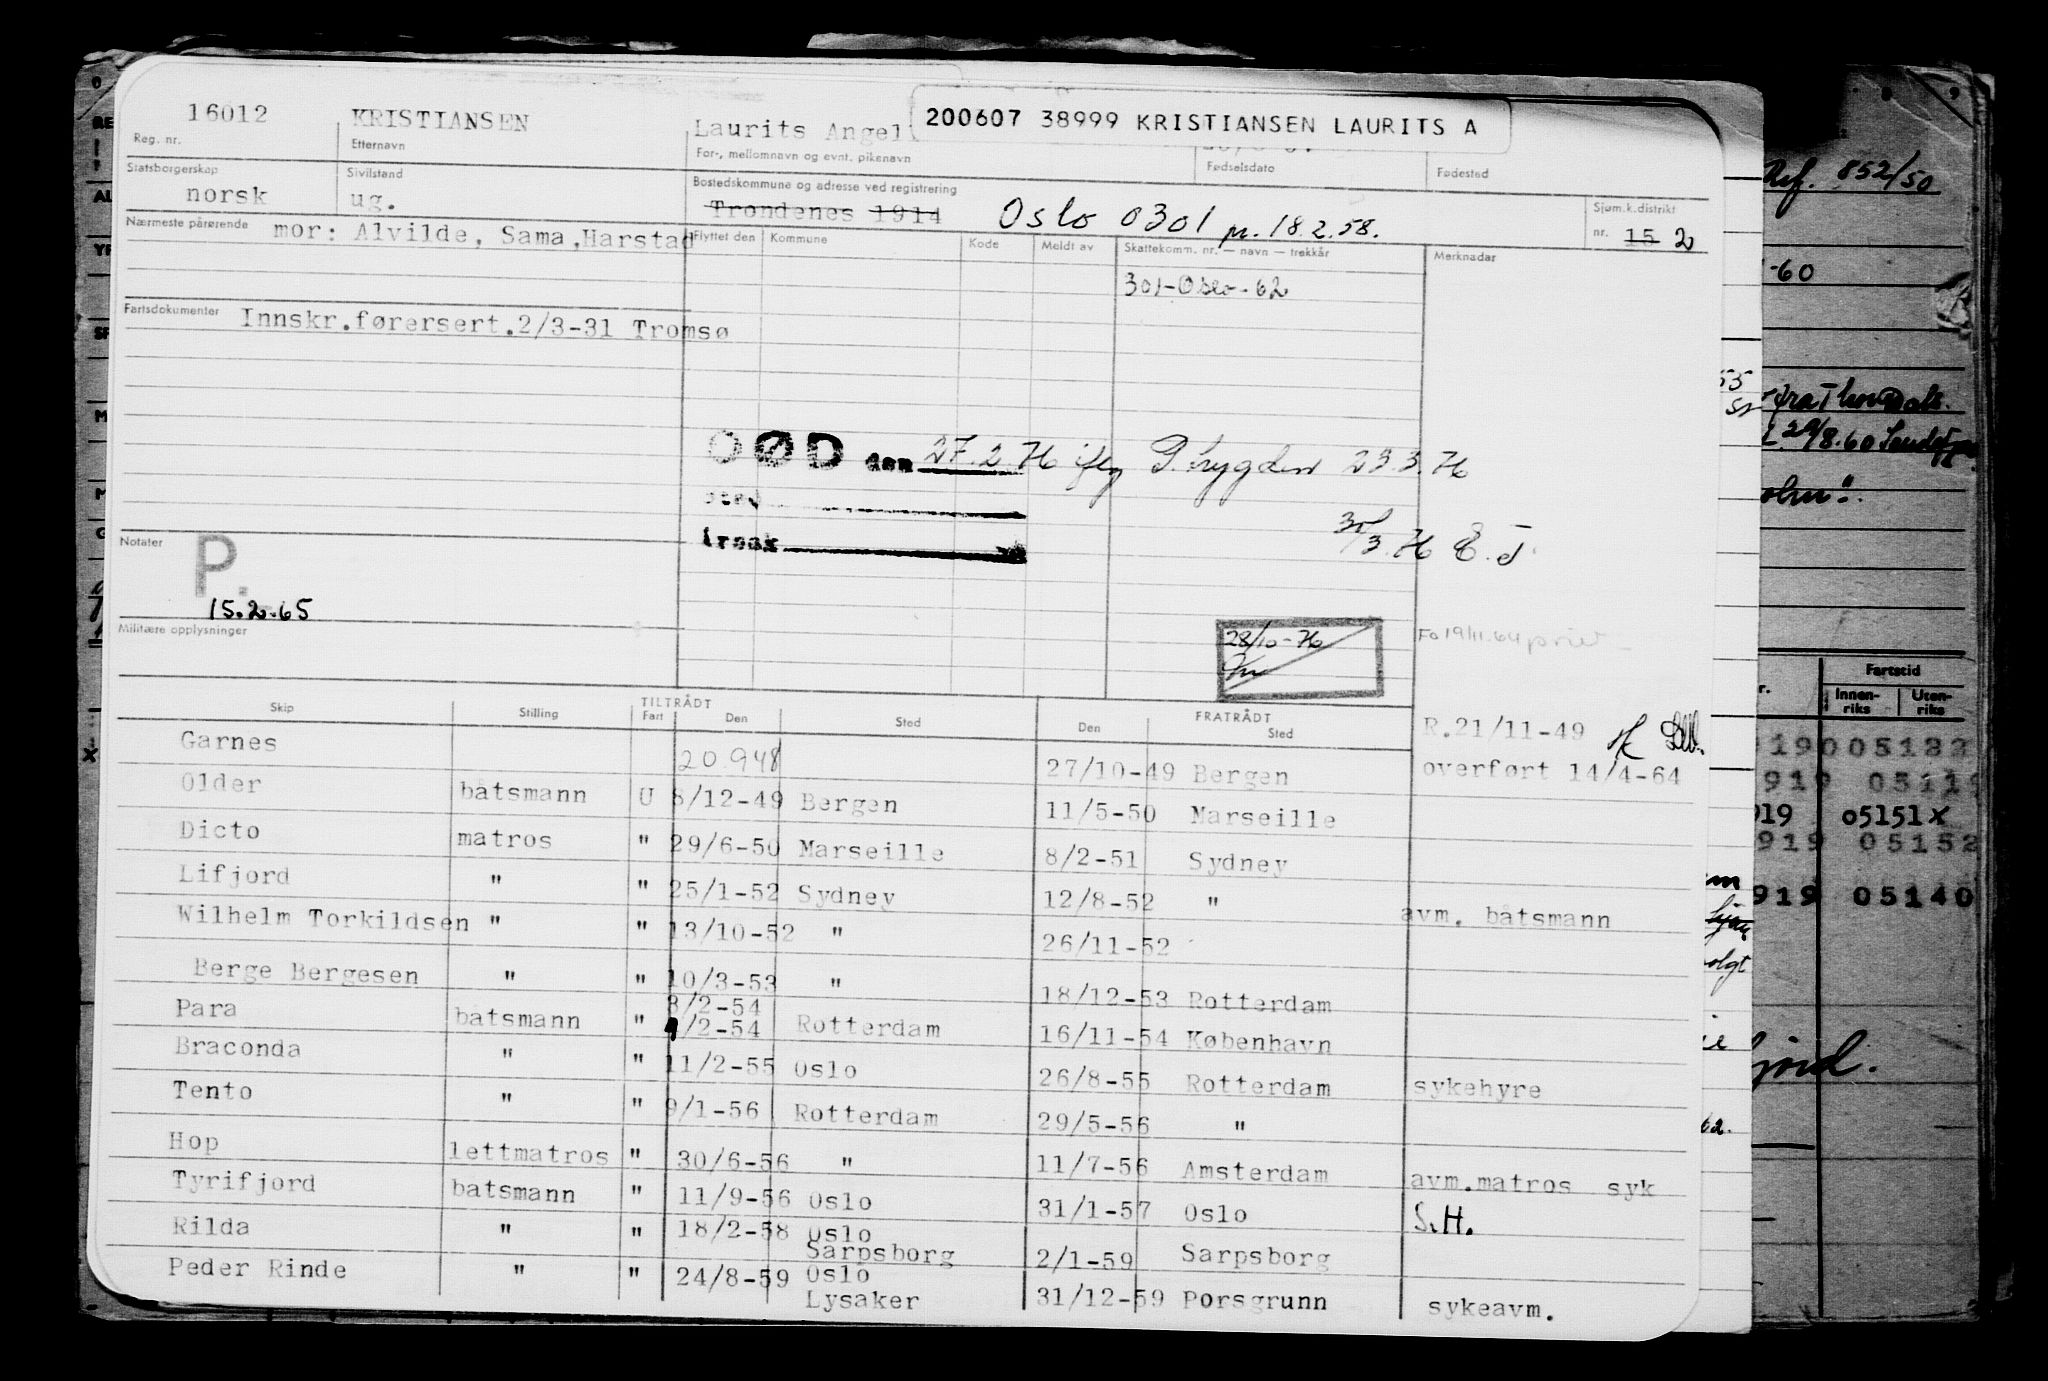 16012 KRISTIANSEN Laurits Angell 200607 38999 KRISTIANSEN LAURITS A
Reg. nr. Etternavn For-, mellomnavn og evnt. pikenavn Fødselsdato Fødested
Statsborgerskap Sivilstand Bostedskommune og adresse ved registrering Sjøm.k.distrikt
norsk ug. Trondenes 1914 Oslo 0301 pr. 18.2.58. nr. 15 2
Nærmeste pårørende mor: Alvilde, Sama, Harstad Flyttet den Kommune Kode Meldt av Skattekomm. nr. — navn — trekkår Merknader
301-Oslo-62
Fartsdokumenter Innskr.førersert.2/3-31 Tromsø
DØD den 27.2.76 iflg 23.3.76
sted
årsak
30/3.76 E.J
Notater P.
15.2.65
Militære opplysninger
28/10-76
Fo 19/11.64
Skip Stilling TILTRÅDT Fart Den Sted FRATRÅDT Den Sted
Garnes 20.948 27/10-49 Bergen R.21/11-49
Older båtsmann U 8/12-49 Bergen 11/5-50 Marseille overført 14/4-64
Dicto matros " 29/6-50 Marseille 8/2-51 Sydney
Lifjord " " 25/1-52 Sydney 12/8-52 "
Wilhelm Torkildsen " " 13/10-52 " 26/11-52 avm. båtsmann
Berge Bergesen " " 10/3-53 " 18/12-53 Rotterdam
8/2-54
Para båtsmann " 9/2-54 Rotterdam 16/11-54 København
Braconda " " 11/2-55 Oslo 26/8-55 Rotterdam sykehyre
Tento " " 9/1-56 Rotterdam 29/5-56 "
Hop lettmatros " 30/6-56 " 11/7-56 Amsterdam avm.matros syk
Tyrifjord båtsmann " 11/9-56 Oslo 31/1-57 Oslo S.H.
Rilda " " 18/2-58 Oslo
Sarpsborg 2/1-59 Sarpsborg
Peder Rinde " " 24/8-59 Oslo
Lysaker 31/12-59 Porsgrunn sykeavm.
Ref. 852/50
-60
29/8.60
Fartstid
Innen-riks Uten-riks
919 05119
919 05151X
919 05152
919 05140